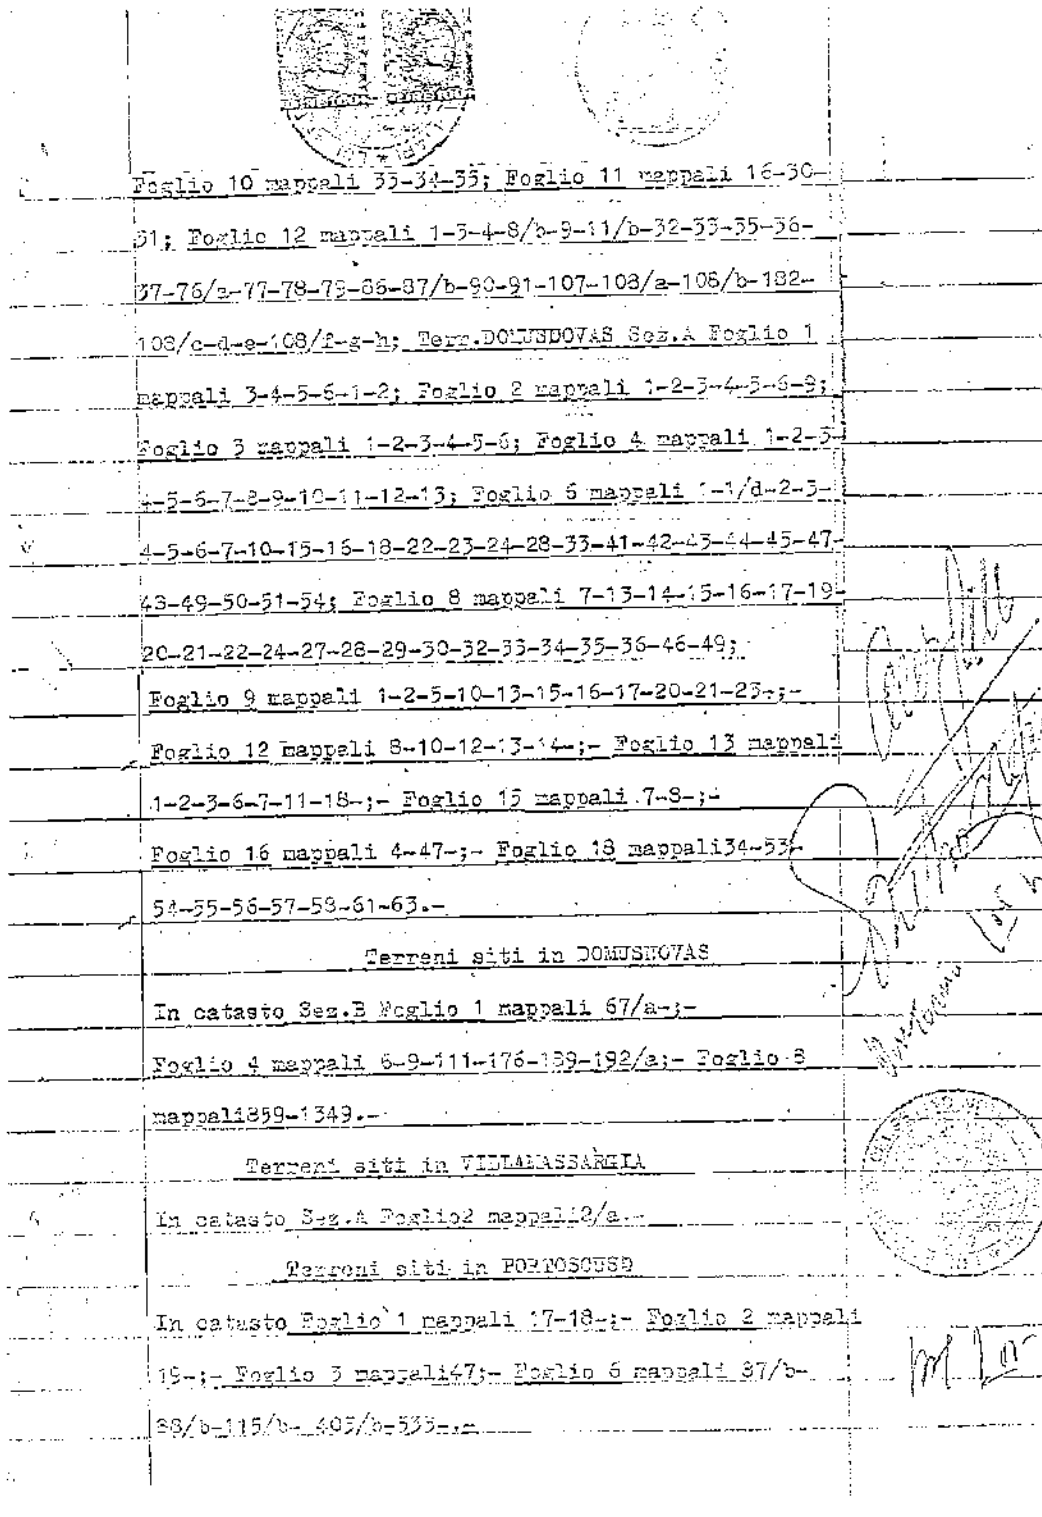 Foglio 10 mappali 33-34-35; Foglio 11 mappali 16-30-
31; Foglio 12 mappali 1-3-4-8/b-9-11/b-32-33-35-36-
37-76/a-77-78-79-86-87/b-90-91-107-108/a-108/b-182-
108/c-d-e-108/f-g-h; Terr.DOMUSNOVAS Sez.A Foglio 1
mappali 3-4-5-6-1-2; Foglio 2 mappali 1-2-3-4-5-6-9;
Foglio 3 mappali 1-2-3-4-5-6; Foglio 4 mappali 1-2-3-
4-5-6-7-8-9-10-11-12-13; Foglio 6 mappali 1-1/d-2-3-
4-5-6-7-10-15-16-18-22-23-24-28-33-41-42-43-44-45-47-
48-49-50-51-54; Foglio 8 mappali 7-13-14-15-16-17-19-
20-21-22-24-27-28-29-30-32-33-34-35-36-46-49;
Foglio 9 mappali 1-2-5-10-13-15-16-17-20-21-23-;-
Foglio 12 mappali 8-10-12-13-14-;- Foglio 13 mappali
1-2-3-6-7-11-18-;- Foglio 15 mappali 7-8-;-
Foglio 16 mappali 4-47-;- Foglio 18 mappali34-53-
54-55-56-57-58-61-63.-
Terreni siti in DOMUSNOVAS
In catasto Sez.B Foglio 1 mappali 67/a-;-
Foglio 4 mappali 6-9-111-176-189-192/a;- Foglio 8
mappali859-1349.-
Terreni siti in VILLAMASSARGIA
In catasto Sez.A Foglio2 mappali2/a.-
Terreni siti in PORTOSCUSO
In catasto Foglio 1 mappali 17-18-;- Foglio 2 mappali
19-;- Foglio 3 mappali47;- Foglio 6 mappali 87/b-
88/b-115/b- 403/b-533-.-